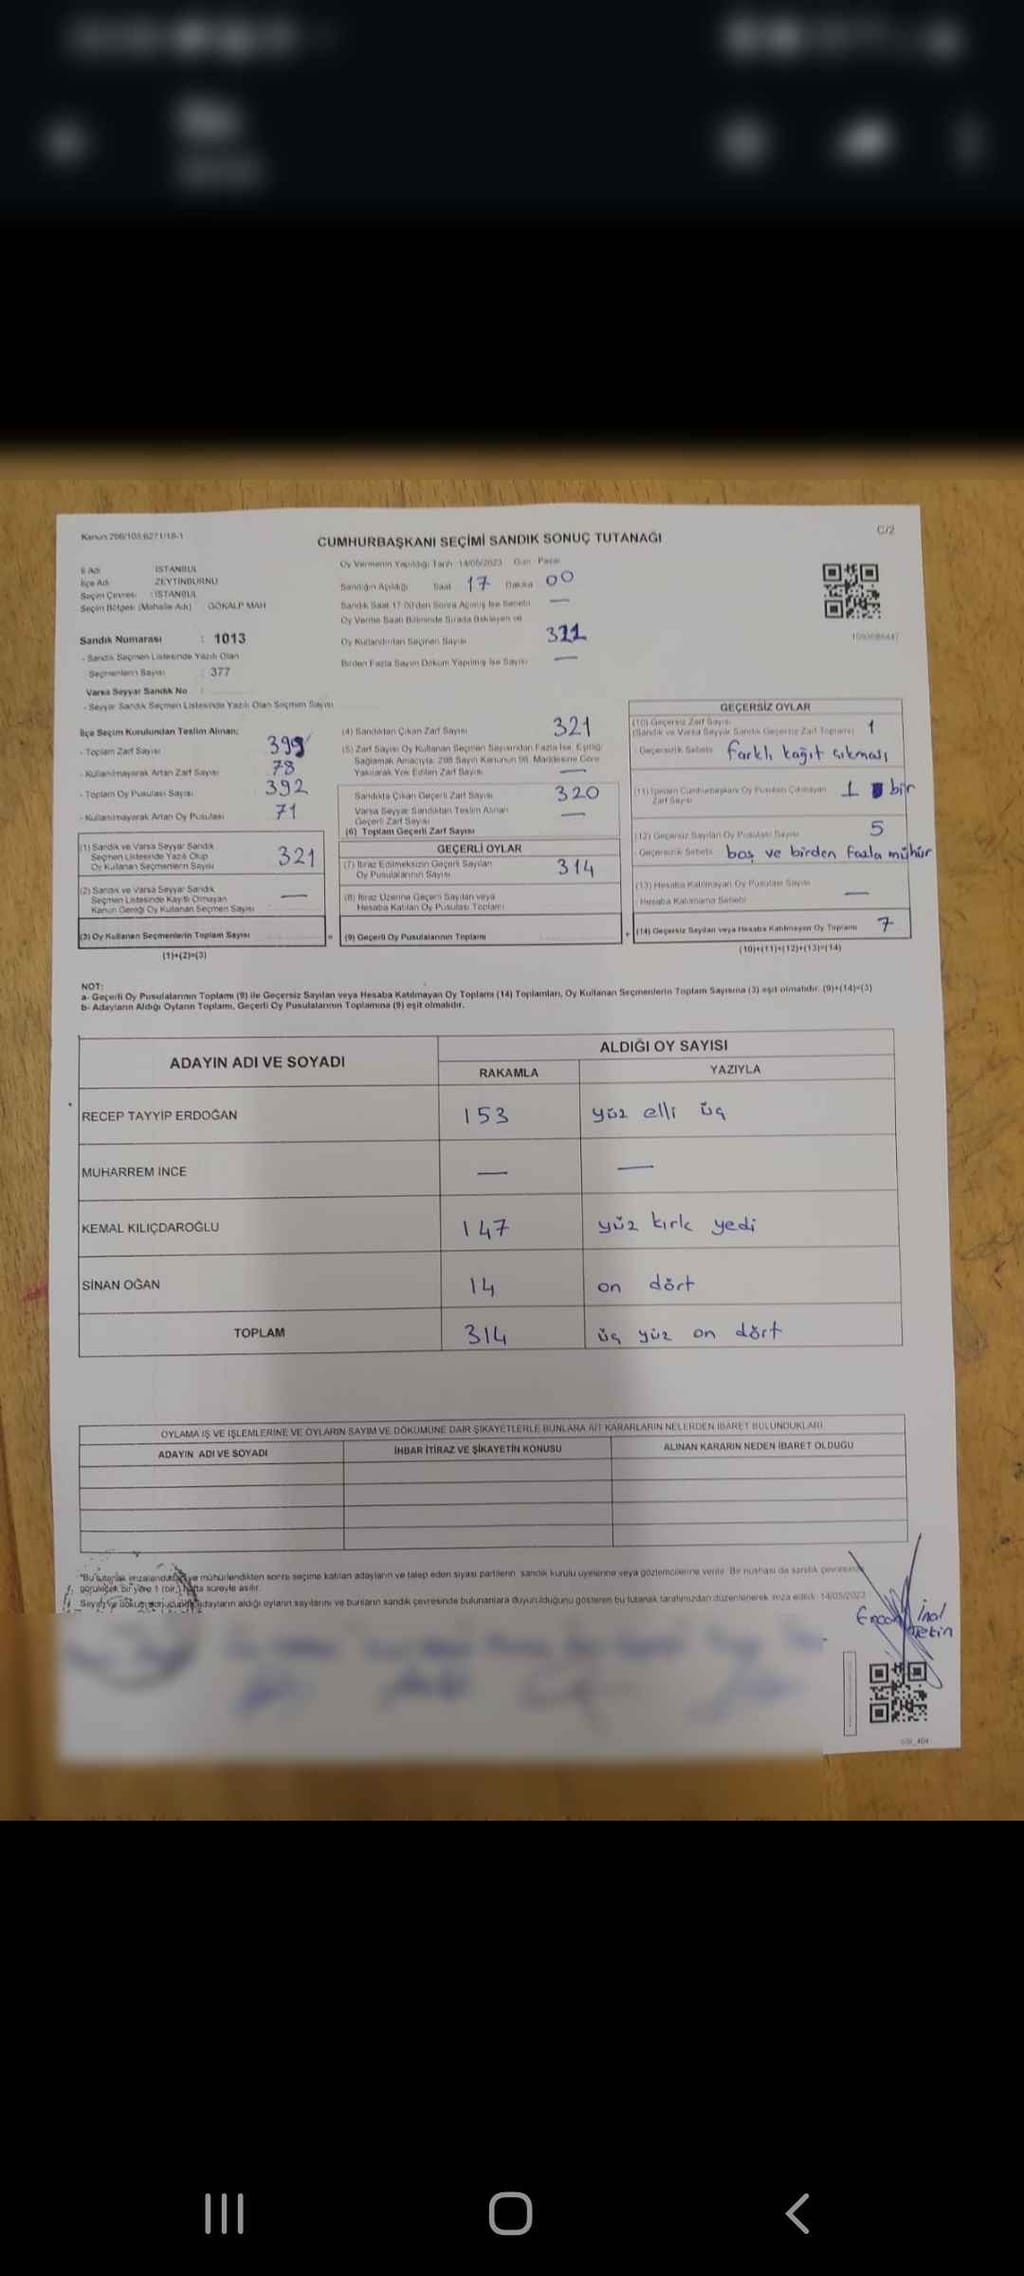 Kanun 298/103 6271/18-1
C/2
CUMHURBAŞKANI SEÇİMİ SANDIK SONUÇ TUTANAĞI
İl Adı İSTANBUL
İlçe Adı ZEYTİNBURNU
Seçim Çevresi : İSTANBUL
Seçim Bölgesi (Mahalle Adı) GÖKALP MAH
Sandık Numarası : 1013
- Sandık Seçmen Listesinde Yazılı Olan
Seçmenlerin Sayısı : 377
Varsa Seyyar Sandık No
- Seyyar Sandık Seçmen Listesinde Yazılı Olan Seçmen Sayısı
Oy Vermenin Yapıldığı Tarih 14/05/2023 Gün Pazar
Sandığın Açıldığı Saat 17 Dakika 00
Sandık Saat 17:00'den Sonra Açılmış İse Sebebi —
Oy Verme Saati Bitiminde Sırada Bekleyen ve
Oy Kullandırılan Seçmen Sayısı 321
Birden Fazla Sayım Döküm Yapılmış İse Sayısı —
İlçe Seçim Kurulundan Teslim Alınan;
- Toplam Zarf Sayısı 399
- Kullanılmayarak Artan Zarf Sayısı 78
- Toplam Oy Pusulası Sayısı 392
- Kullanılmayarak Artan Oy Pusulası 71
(1) Sandık ve Varsa Seyyar Sandık
Seçmen Listesinde Yazılı Olup
Oy Kullanan Seçmenlerin Sayısı 321
(2) Sandık ve Varsa Seyyar Sandık
Seçmen Listesinde Kayıtlı Olmayan
Kanun Gereği Oy Kullanan Seçmen Sayısı —
(3) Oy Kullanan Seçmenlerin Toplam Sayısı
(1)+(2)=(3)
(4) Sandıktan Çıkan Zarf Sayısı 321
(5) Zarf Sayısı Oy Kullanan Seçmen Sayısından Fazla İse, Eşitliği
Sağlamak Amacıyla, 298 Sayılı Kanunun 98. Maddesine Göre
Yakılarak Yok Edilen Zarf Sayısı —
Sandıkta Çıkan Geçerli Zarf Sayısı 320
Varsa Seyyar Sandıktan Teslim Alınan
Geçerli Zarf Sayısı —
(6) Toplam Geçerli Zarf Sayısı
GEÇERLİ OYLAR
(7) İtiraz Edilmeksizin Geçerli Sayılan
Oy Pusulalarının Sayısı 314
(8) İtiraz Üzerine Geçerli Sayılan veya
Hesaba Katılan Oy Pusulası Toplamı
= (9) Geçerli Oy Pusulalarının Toplamı
GEÇERSİZ OYLAR
(10) Geçersiz Zarf Sayısı
(Sandık ve Varsa Seyyar Sandık Geçersiz Zarf Toplamı) 1
Geçersizlik Sebebi farklı kağıt çıkması
(11) İçinden Cumhurbaşkanı Oy Pusulası Çıkmayan
Zarf Sayısı 1 bir
(12) Geçersiz Sayılan Oy Pusulası Sayısı 5
Geçersizlik Sebebi boş ve birden fazla mühür
(13) Hesaba Katılmayan Oy Pusulası Sayısı —
Hesaba Katılmama Sebebi
+ (14) Geçersiz Sayılan veya Hesaba Katılmayan Oy Toplamı 7
(10)+(11)+(12)+(13)=(14)
NOT:
a- Geçerli Oy Pusulalarının Toplamı (9) ile Geçersiz Sayılan veya Hesaba Katılmayan Oy Toplamı (14) Toplamları, Oy Kullanan Seçmenlerin Toplam Sayısına (3) eşit olmalıdır. (9)+(14)=(3)
b- Adayların Aldığı Oyların Toplamı, Geçerli Oy Pusulalarının Toplamına (9) eşit olmalıdır.
ADAYIN ADI VE SOYADI ALDIĞI OY SAYISI
RAKAMLA YAZIYLA
RECEP TAYYİP ERDOĞAN 153 yüz elli üç
MUHARREM İNCE — —
KEMAL KILIÇDAROĞLU 147 yüz kırk yedi
SİNAN OĞAN 14 on dört
TOPLAM 314 üç yüz on dört
OYLAMA İŞ VE İŞLEMLERİNE VE OYLARIN SAYIM VE DÖKÜMÜNE DAİR ŞİKAYETLERLE BUNLARA AİT KARARLARIN NELERDEN İBARET BULUNDUKLARI
ADAYIN ADI VE SOYADI İHBAR İTİRAZ VE ŞİKAYETİN KONUSU ALINAN KARARIN NEDEN İBARET OLDUĞU
*Bu tutanak imzalandıktan ve mühürlendikten sonra seçime katılan adayların ve talep eden siyasi partilerin sandık kurulu üyelerine veya gözlemcilerine verilir. Bir nüshası da sandık çevresinde
görülecek bir yere 1 (bir) hafta süreyle asılır.
adayların aldığı oyların sayılarını ve bunların sandık çevresinde bulunanlara duyurulduğunu gösteren bu tutanak tarafımızdan düzenlenerek imza edildi. 14/05/2023
İnal